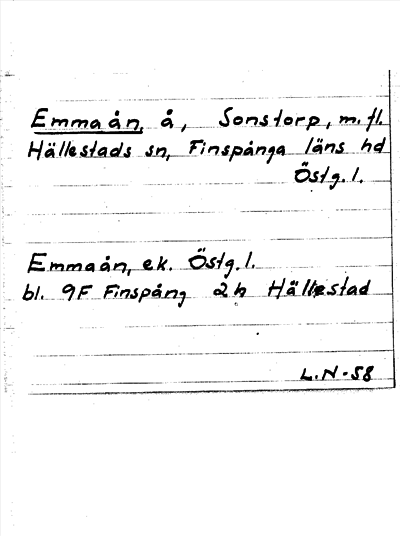 Emmaån, å, Sonstorp, m.fl.
Hällestads sn, Finspånga läns hd
Östg.l.
Emmaån, ek. Östg.l.
bl. 9F Finspång 2h Hällestad
L.N-58